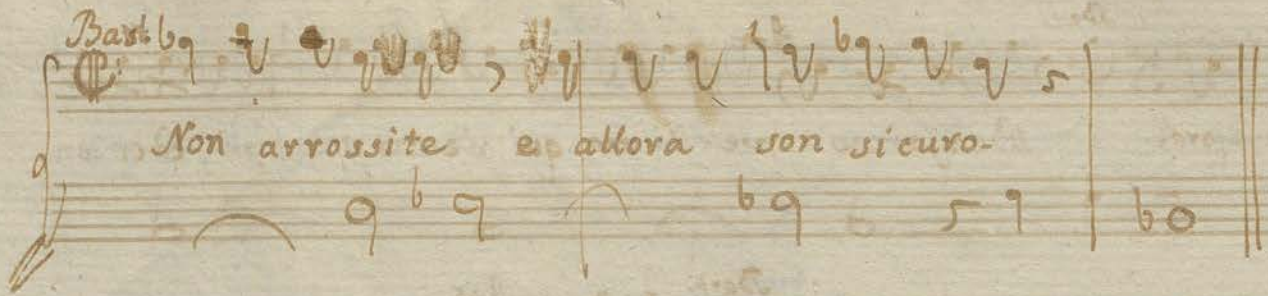 Bart:
Non arrossite e allora son sicuro-